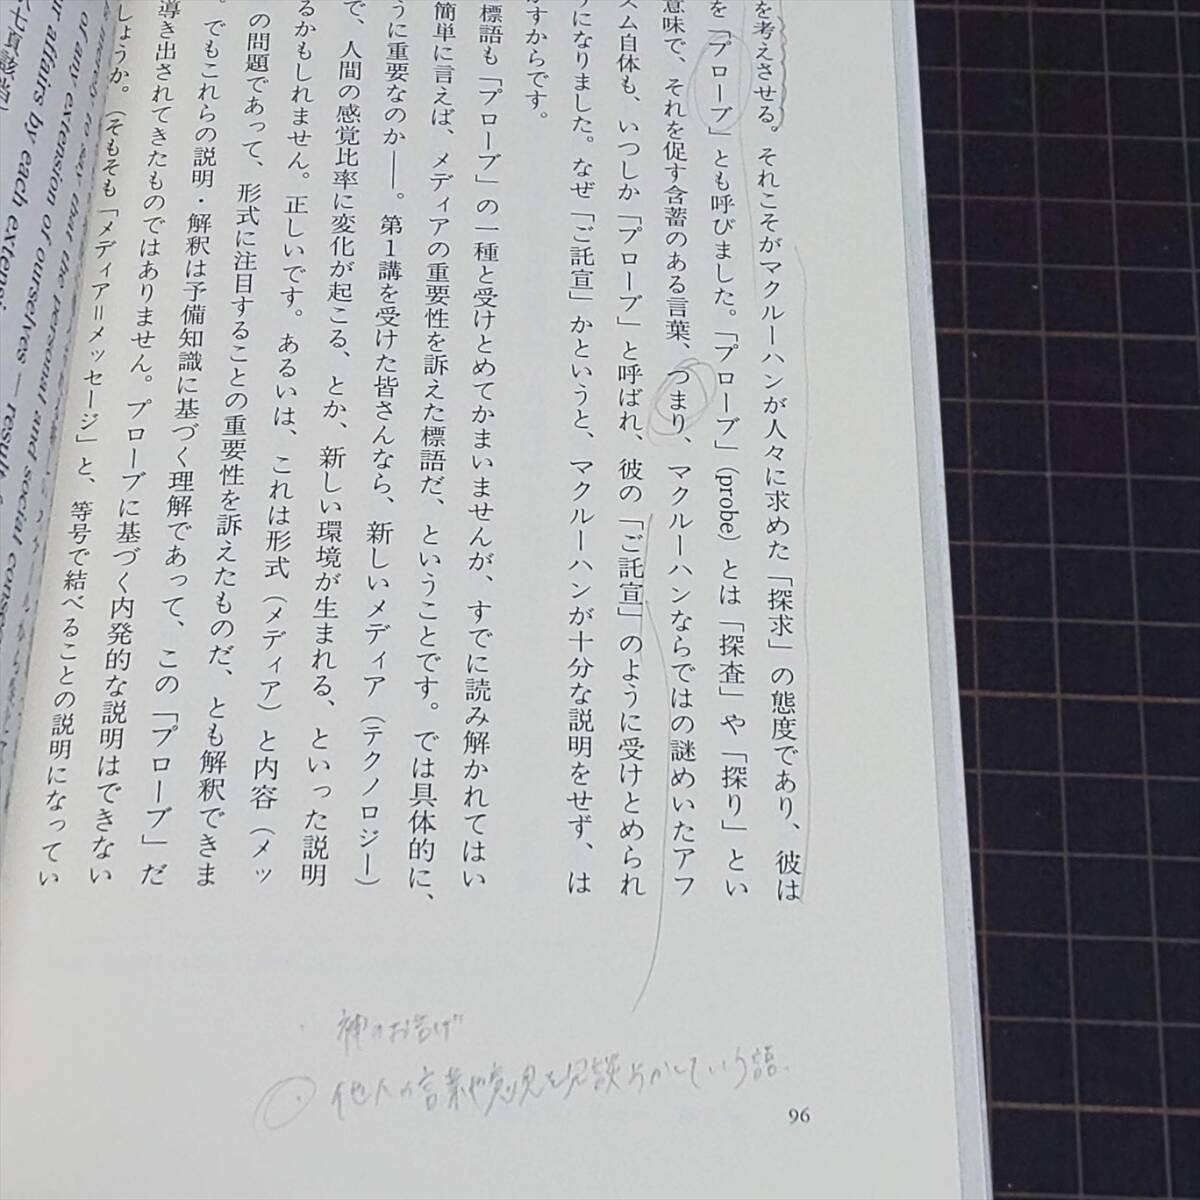 を考えさせる。それこそがマクルーハンが人々に求めた「探求」の態度であり、彼は
を「プローブ」とも呼びました。「プローブ」(probe)とは「探査」や「探り」とい
意味で、それを促す含蓄のある言葉、つまり、マクルーハンならではの謎めいたアフ
ズム自体も、いつしか「プローブ」と呼ばれ、彼の「ご託宣」のように受けとめられ
うになりました。なぜ「ご託宣」かというと、マクルーハンが十分な説明をせず、は
かすからです。
標語も「プローブ」の一種と受けとめてかまいませんが、すでに読み解かれてはい
簡単に言えば、メディアの重要性を訴えた標語だ、ということです。では具体的に、
うに重要なのか――。第1講を受けた皆さんなら、新しいメディア(テクノロジー)
で、人間の感覚比率に変化が起こる、とか、新しい環境が生まれる、といった説明
るかもしれません。正しいです。あるいは、これは形式(メディア)と内容(メッ
の問題であって、形式に注目することの重要性を訴えたものだ、とも解釈できま
。でもこれらの説明・解釈は予備知識に基づく理解であって、この「プローブ」だ
導き出されてきたものではありません。プローブに基づく内発的な説明はできない
しょうか。(そもそも「メディア=メッセージ」と、等号で結べることの説明になってい
is merely to say that the personal and social conse
of any extension of ourselves — result
ur affairs by each extensi
神のお告げ
他人の言葉や意見を冗談めかしていう語.
96